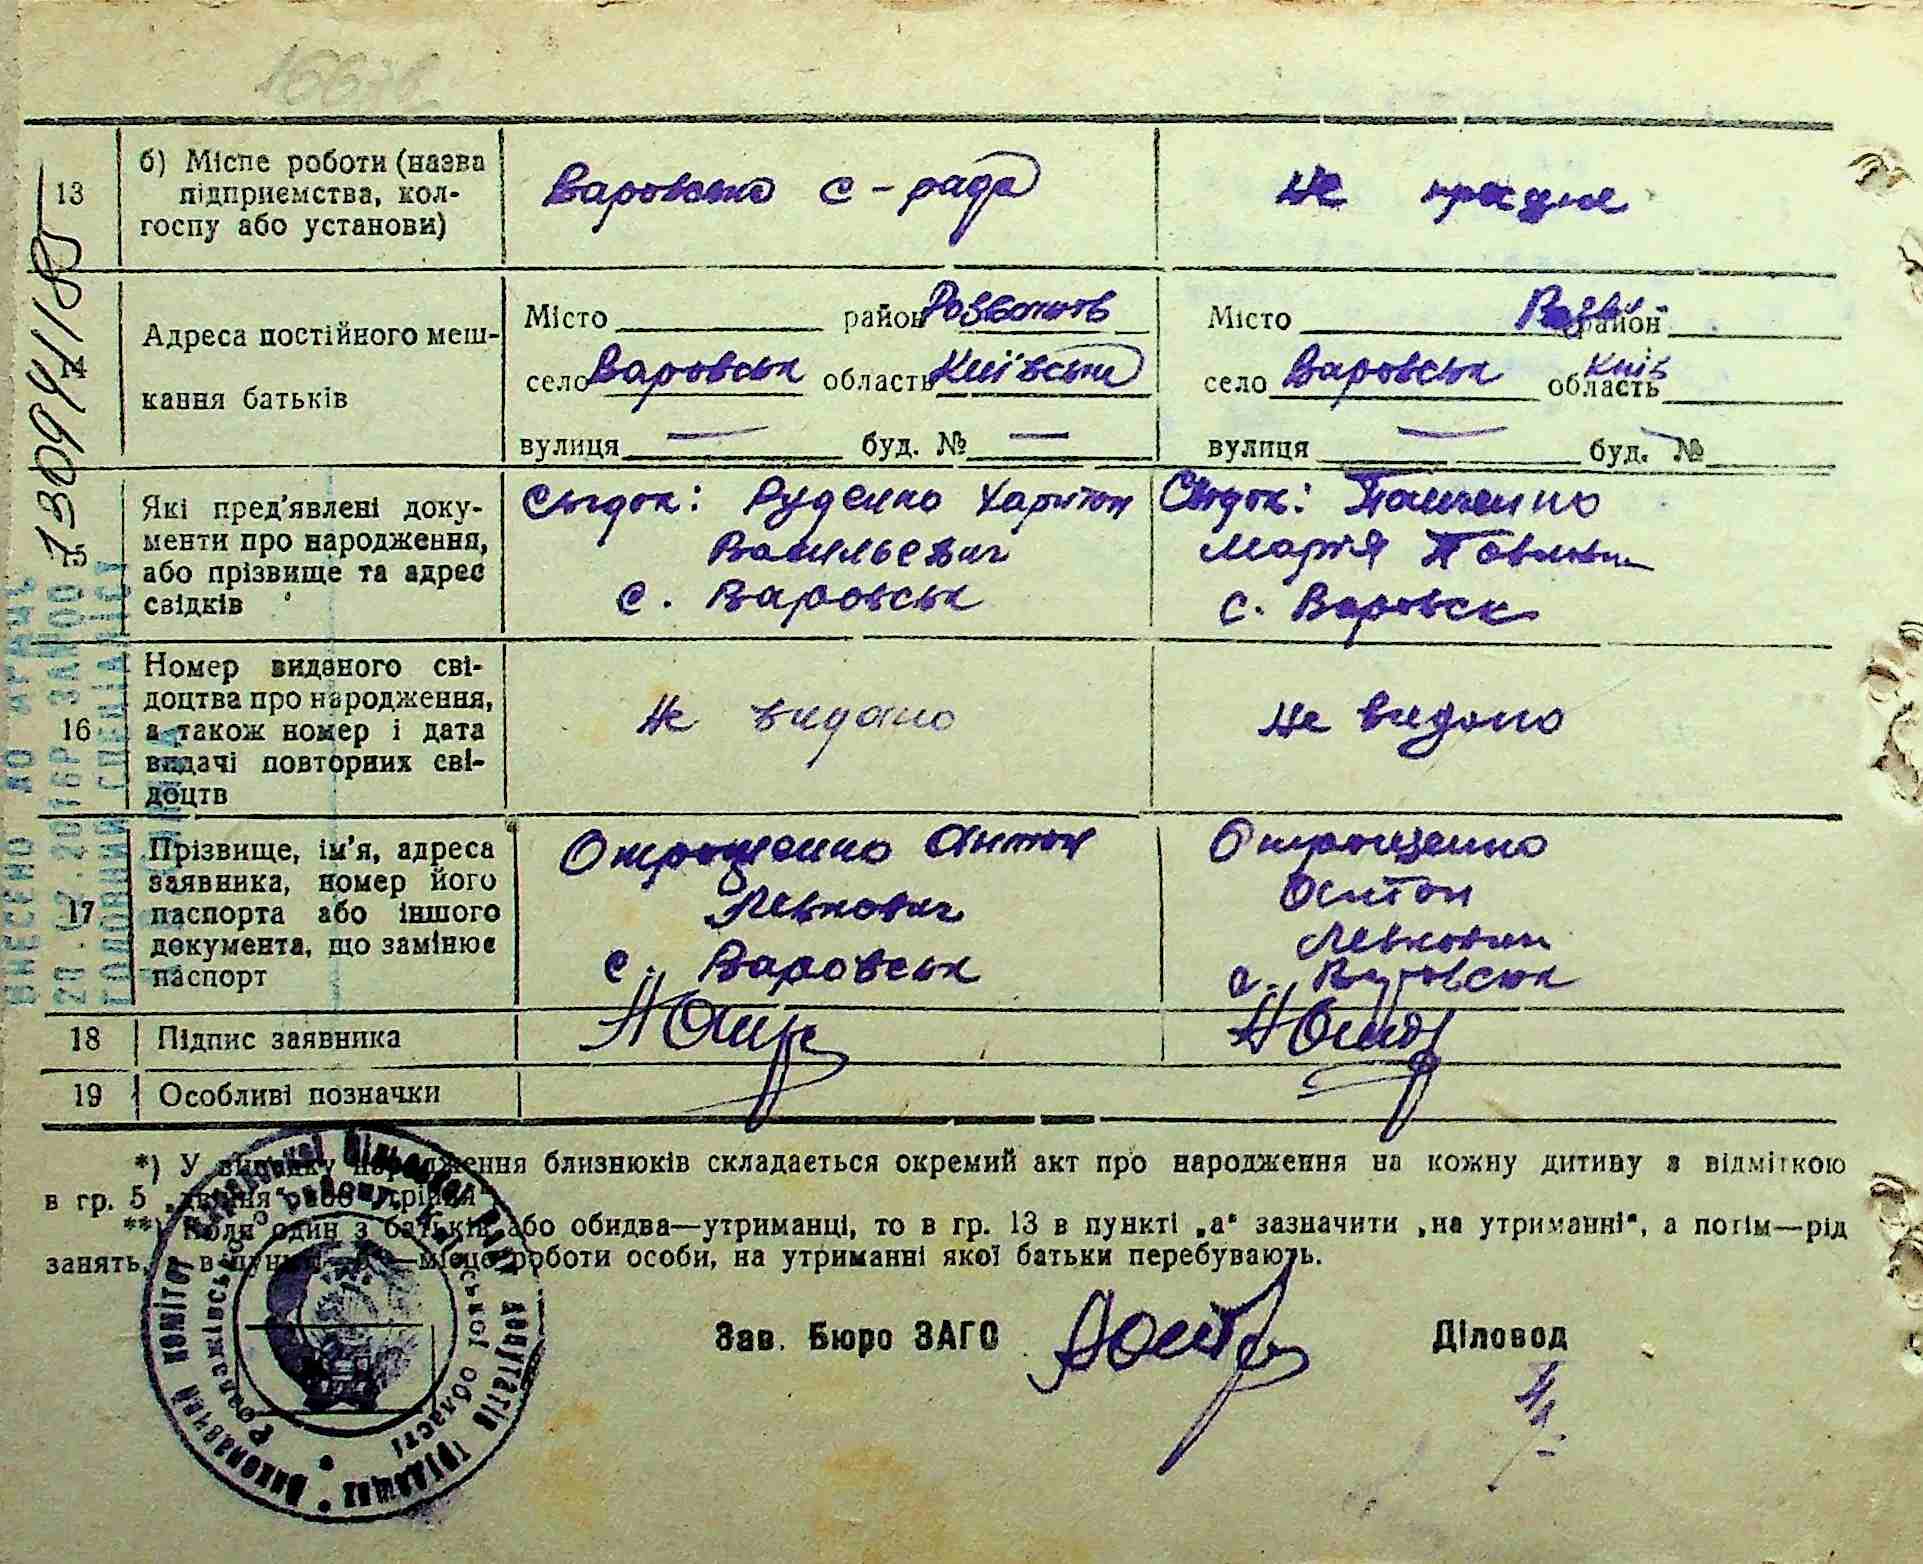 13
б) Місце роботи (назва
підприємства, кол-
госпу або установи)
Варовська с-рада
Не працює
14
Адреса постійного меш-
кання батьків
Місто район Розважів
село Варовськ область Київська
вулиця — буд. № —
Місто район
село Варовськ область Київ
вулиця — буд. № —
15
Які пред'явлені доку-
менти про народження,
або прізвище та адрес
свідків
Свідок: Руденко Харитон
Васильевич
с. Варовськ
Свідок:
Марія Павлівн
с. Варовск
16
Номер виданого сві-
доцтва про народження,
а також номер і дата
видачі повторних сві-
доцтв
Не видано
Не видано
17
Прізвище, ім'я, адреса
заявника, номер його
паспорта або іншого
документа, що замінює
паспорт
Отрощенко Антон
Левкович
с. Варовськ
Отрощенко
Антон
Левкович
с. Варовськ
18
Підпис заявника
19
Особливі позначки
*) У випадку народження близнюків складається окремий акт про народження на кожну дитину з відміткою
в гр. 5 „двійня" або „трійня".
**) Коли один з батьків або обидва—утриманці, то в гр. 13 в пункті „а" зазначити „на утриманні", а потім—рід
занять, а в пункті „б"—місце роботи особи, на утриманні якої батьки перебувають.
Зав. Бюро ЗАГС
Діловод
13094/185
ВНЕСЕНО ДО
ГОЛОВНИЙ СПЕЦІАЛІСТ
Виконавчий комітет
депутатів трудящих